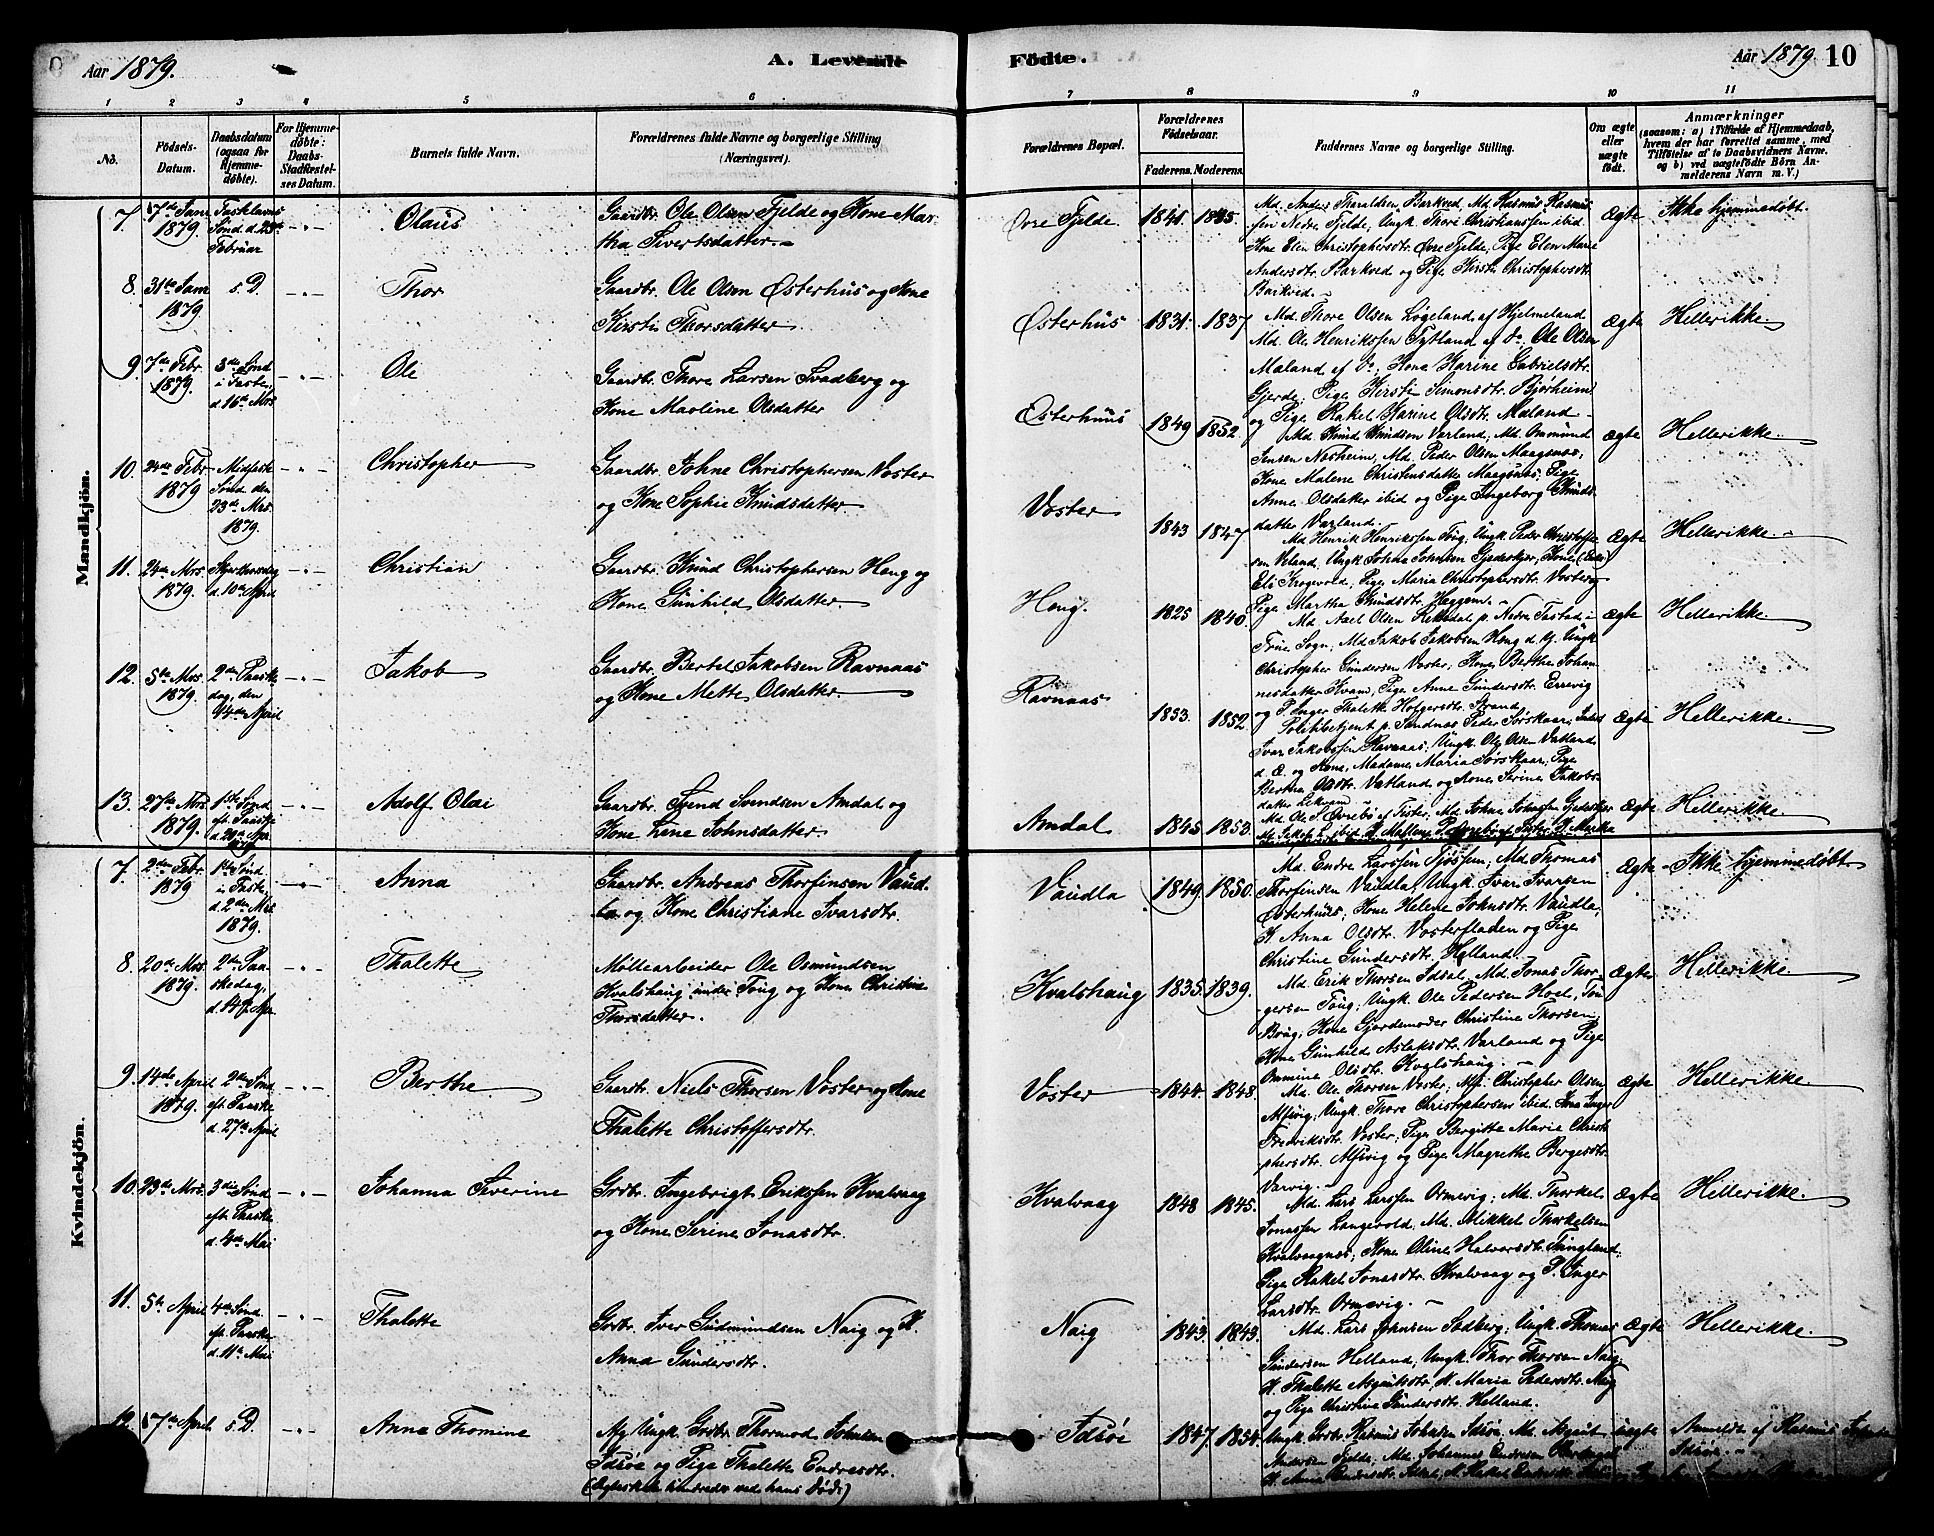 Aar 1879.
A. Levende
Födte.
Aar 1879
10
1 2 3 4 5 6 7 8 9 10 11
No.
Födsels-Datum.
Daabsdatum (ogsaa for Hjemme-döbte).
For Hjemme-döbte: Daabs-Stadfæstel-ses Datum.
Barnets fulde Navn.
Forældrenes fulde Navne og borgerlige Stilling (Næringsvei).
Forældrenes Bopæl.
Forældrenes Födselsaar.
Faderens. Moderens.
Faddernes Navne og borgerlige Stilling.
Om ægte eller uægte födt.
Anmærkninger
(saasom: a) i Tilfælde af Hjemmedaab,
hvem der har forrettet samme, med
Tilföielse af to Daabsvidners Navne,
og b) ved uægtefödte Börn An-
melderens Navn m. V.)
Mandkjön.
7. 1879. Fastelavns Sönd. d. 23de Februar
Olaus
Gaardbr. Ole Olsen Fjelde og Kone Mar-
tha Sivertsdatter.
Övre Fjelde. 1841 1845.
Md. Anders Tharaldsen Barkved, Md. Rasmus Rasmus-
sen Nedre Fjelde, Ungk. Thore Christiansen ibid.
Kone Elen Christophersdt. Övre Fjelde, Pige Elen Marie
Andersdt. Barkved og Pige Kirsti Christophersdt.
Barkved.
Ægte Ikke hjemmedöbt.
8. 31te Janr 1879. s. D.
Thor
Gaardbr. Ole Olsen Østerhus og Kone
Kirsti Thorsdatter.
Østerhus 1831. 1837
Md. Thore Olsen Løgeland af Hjelmeland
Md. Ole Henrikssen Tytland af do, Ole Olsen
Maland af do; Kona Karine Gabrielsdtr.
Gjerde; Pige Kirsti Simonsdtr. Bjørheim
og Pige Rakel Karine Olsdtr. Maland
Ægte Hellerikke.
9. 7de Febr 1879. 3de Sönd i Faste, d. 16de Mrs
Ole
Gaardbr. Thore Larsen Svadberg og
Kone Maoline Olsdatter
Østerhuus 1849 1852
Md. Knud Knudsen Varland; Md. Ommund
Jensen Nasheim, Md. Peder Olsen Maagenæs;
Kone Malene Christensdatter Maagenæs; Pige
Anne Olsdatter ibid og Pige Ingeborg Knuds-
datter Varland.
Ægte Hellerikke.
10. 24de Febr 1879. Midfaste Sönd den 23de Mrs 1879.
Christopher
Gaardbr. Johne Christophersen Voster
og Kone Sophie Knudsdatter
Voster 1843 1847
Md. Henrik Henrikssen Toug; Ungk. Peder Christoffer-
sen Veland, Ungk. Johne Johnsen Gjedrekjer, Kone
Eli Krogevold, Pige Maria Christophersdtr. Voster og
Pige Martha Knudsdtr. Heggem.
Ægte Hellerikke.
11. 24de Mrs. 1879. Skjærthorsdag d. 10de April
Christian
Gaardbr. Knud Christophersen Haug og
Kone Gunhild Olsdatter.
Haug. 1825 1840.
Md. Axel Olsen Rekedal p. Nedre Tastad i
Frue Sogn, Md. Jakob Jakobsen Haug d. kj. Ungk
Christopher Gundersen Voster; Kone Berthe Johan-
nesdatter Kvam, Pige Anne Gundersdtr. Errevig
og P. Inger Thalette Holgersdtr. Strand,
Ægte Hellerikke.
12. 5te Mrs 1879. 2den Paaske-dag, den 14de April
Jakob
Gaardbr. Bertel Jakobsen Ravnaas
og Kone Mette Olsdatter.
Ravnaas 1853. 1852.
Politibetjent p. Sandnæs Peder Sørskaar,
Ivar Jakobssen Ravnaas; Ungk. Ole Olsen Vatland
d. Æ. og Kone, Madame Maria Sørskaar, Pige
Bertha Olsdtr. Vatland og Kone Serine Jakobs-
datter
Ægte Hellerikke.
13. 27de Mrs 1879. 1ste Sönd eft. Paaske d. 20de Apr
Adolf Olai
Gaardbr. Svend Svendsen Amdal og
Kone Line Johnsdatter
Amdal 1845 1853.
Ægte Hellerikke.
Kvindekjön.
7. 2den Febr 1879. 1ste Sönd i Faste, d. 2den Mrs 1879.
Anna
Gaardbr. Andreas Thorfinsen Vaud-
la og Kone Christiane Ivarsdtr.
Vaudla 1849 1850.
Md. Endre Larssen Tjøssem; Md. Thomas
Thorfinsen Vaudla, Ungk. Ivar Ivarsen
Østerhuus; Kone Helene Johnsdtr. Vaudla,
K. Anna Olsdtr. Vosterfladen og Pige
Christine Gundersdtr. Helland.
Ægte Ikke hjemmedöbt
8. 20de Mrs. 1879. 2den Paa-skedag, d. 14. Apr.
Thalette
Møllearbeider Ole Osmundsen
Kvalshaug under Toug og Kone Christine
Thorsdatter.
Kvalshaug 1835. 1839.
Md. Erik Thorsen Idsal, Md. Jonas Thor-
gersen Toug, Ungk. Ole Pedersen Hoel,
Kone Gjordemoder Christine Thorsen,
Kone Gunhilde Aslaksdtr. Varland og Pige
Ommine Olsdtr. Kvalshaug.
Ægte Hellerikke.
9. 14de April 1879. 2den Sönd eft. Paaske d. 27de April
Berthe
Gaardbr. Niels Thorsen Voster og Kone
Thalette Christoffersdtr.
Voster 1844. 1848.
Md. Ole Thorsen Voster, Md. Christopher Olsen
Alsvig; Ungk. Thore Christophersen ibid. Kona Inger
Fredriksdtr. Voster; Pige Bergitte Marie Christo-
phersdtr. Alsvig og Pige Magrethe Børgesdtr.
Varvig.
Ægte Hellerikke.
10. 23de Mrs. 3die Sönd eft. Paaske d. 4de Mai
Johanna Severine
Grdbr. Ingebrigt Erikssen Kvalvaag
og Kone Serine Jonasdtr.
Kvalvaag 1848 1845.
Md. Lars Larssen Ormevig; Md. Thorkel
Jonassen Langevold, Md. Mikkel Thorkelsen
Kvalvaagnæs; Kone Oline Halvorsdtr. Tungland.
Pige Rakel Jonasdtr. Kvalvaag og P. Inger
Larsdtr. Ormevig.
Ægte Hellerikke.
11. 5te April 4de Sönd. eft. Paaske d. 11te Mai
Thalette
Grdbr. Iver Gudmundsen Naig og K.
Anna Gundersdtr.
Naig 1843. 1843.
Md. Lars Johnsen Sodberg; Ungk. Thomas
Gundersen Helland, Ungk. Thor Thorsen Naig,
K. Thalette Asgautsdtr., K. Maria Pedersdtr. Naig
og Pige Christine Gundersdtr. Helland.
Ægte Hellerikke.
12. 17de April s. D.
Anne Thomine
Af Ungk. Grdbr. Thormod Johnsen
Idsøe og Pige Thalette Endresdtr.
(Ægteskab hindredes ved hans Död.)
Idsöe 1847. 1854.
Ungk. Grdbr. Rasmus Johnsen Idsöe, Md. Asgaut
Andersen Fjelde, Md. Johannes Endresen
uægte Anmeldt af Rasmus
Idsöe.